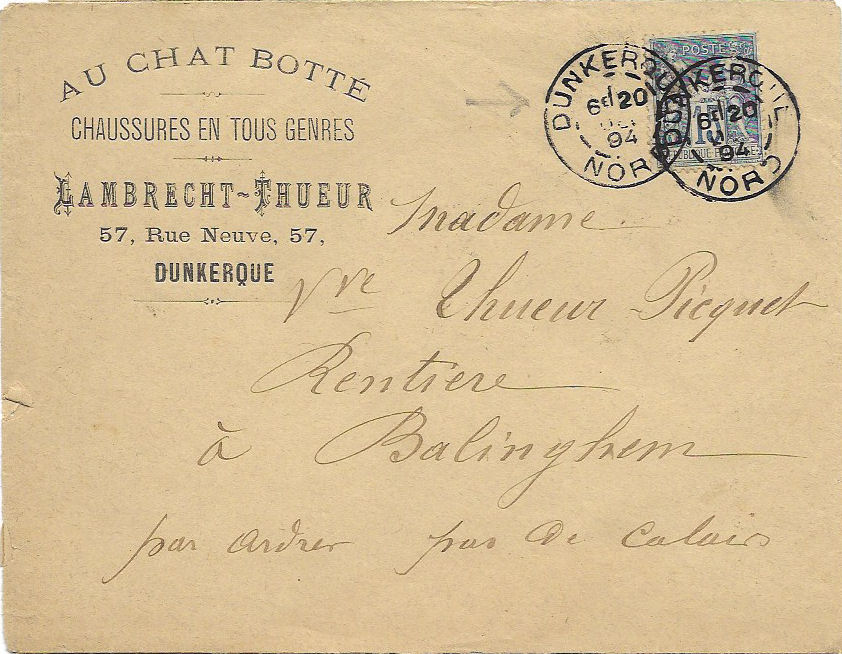 AU CHAT BOTTÉ
CHAUSSURES EN TOUS GENRES
LAMBRECHT~THUEUR
57, Rue Neuve, 57,
DUNKERQUE
POSTES
15
DUNKERQUE
6E/20
94
NORD
DUNKERQUE
6E/20
94
NORD
Madame
Vve Thueur Picquet
Rentiere
à Balinghem
par ardrer pas de Calais